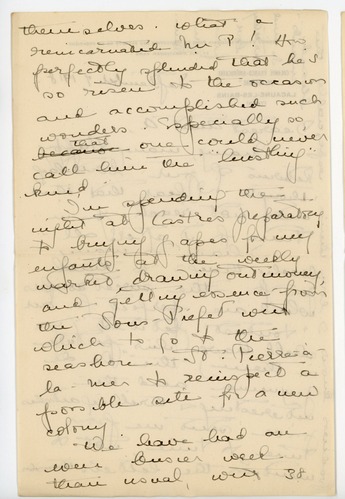 themselves. What a
reincarnated Mr P! How
perfectly splendid that he's
so risen to the occasion
and accomplished such
wonders. Especially so
because that one could never
call him the "hustling"
kind.
I'm spending the
night at Castres preparatory
to buying grapes for my
enfants at the weekly
market, drawing out money,
and getting essence from
the Sous Prefet with
which to go to the
seashore - St. Pierre-à-
la-mer to reinspect a
possible site for a new
colony.
We have had an
even busier week
than usual, with 38